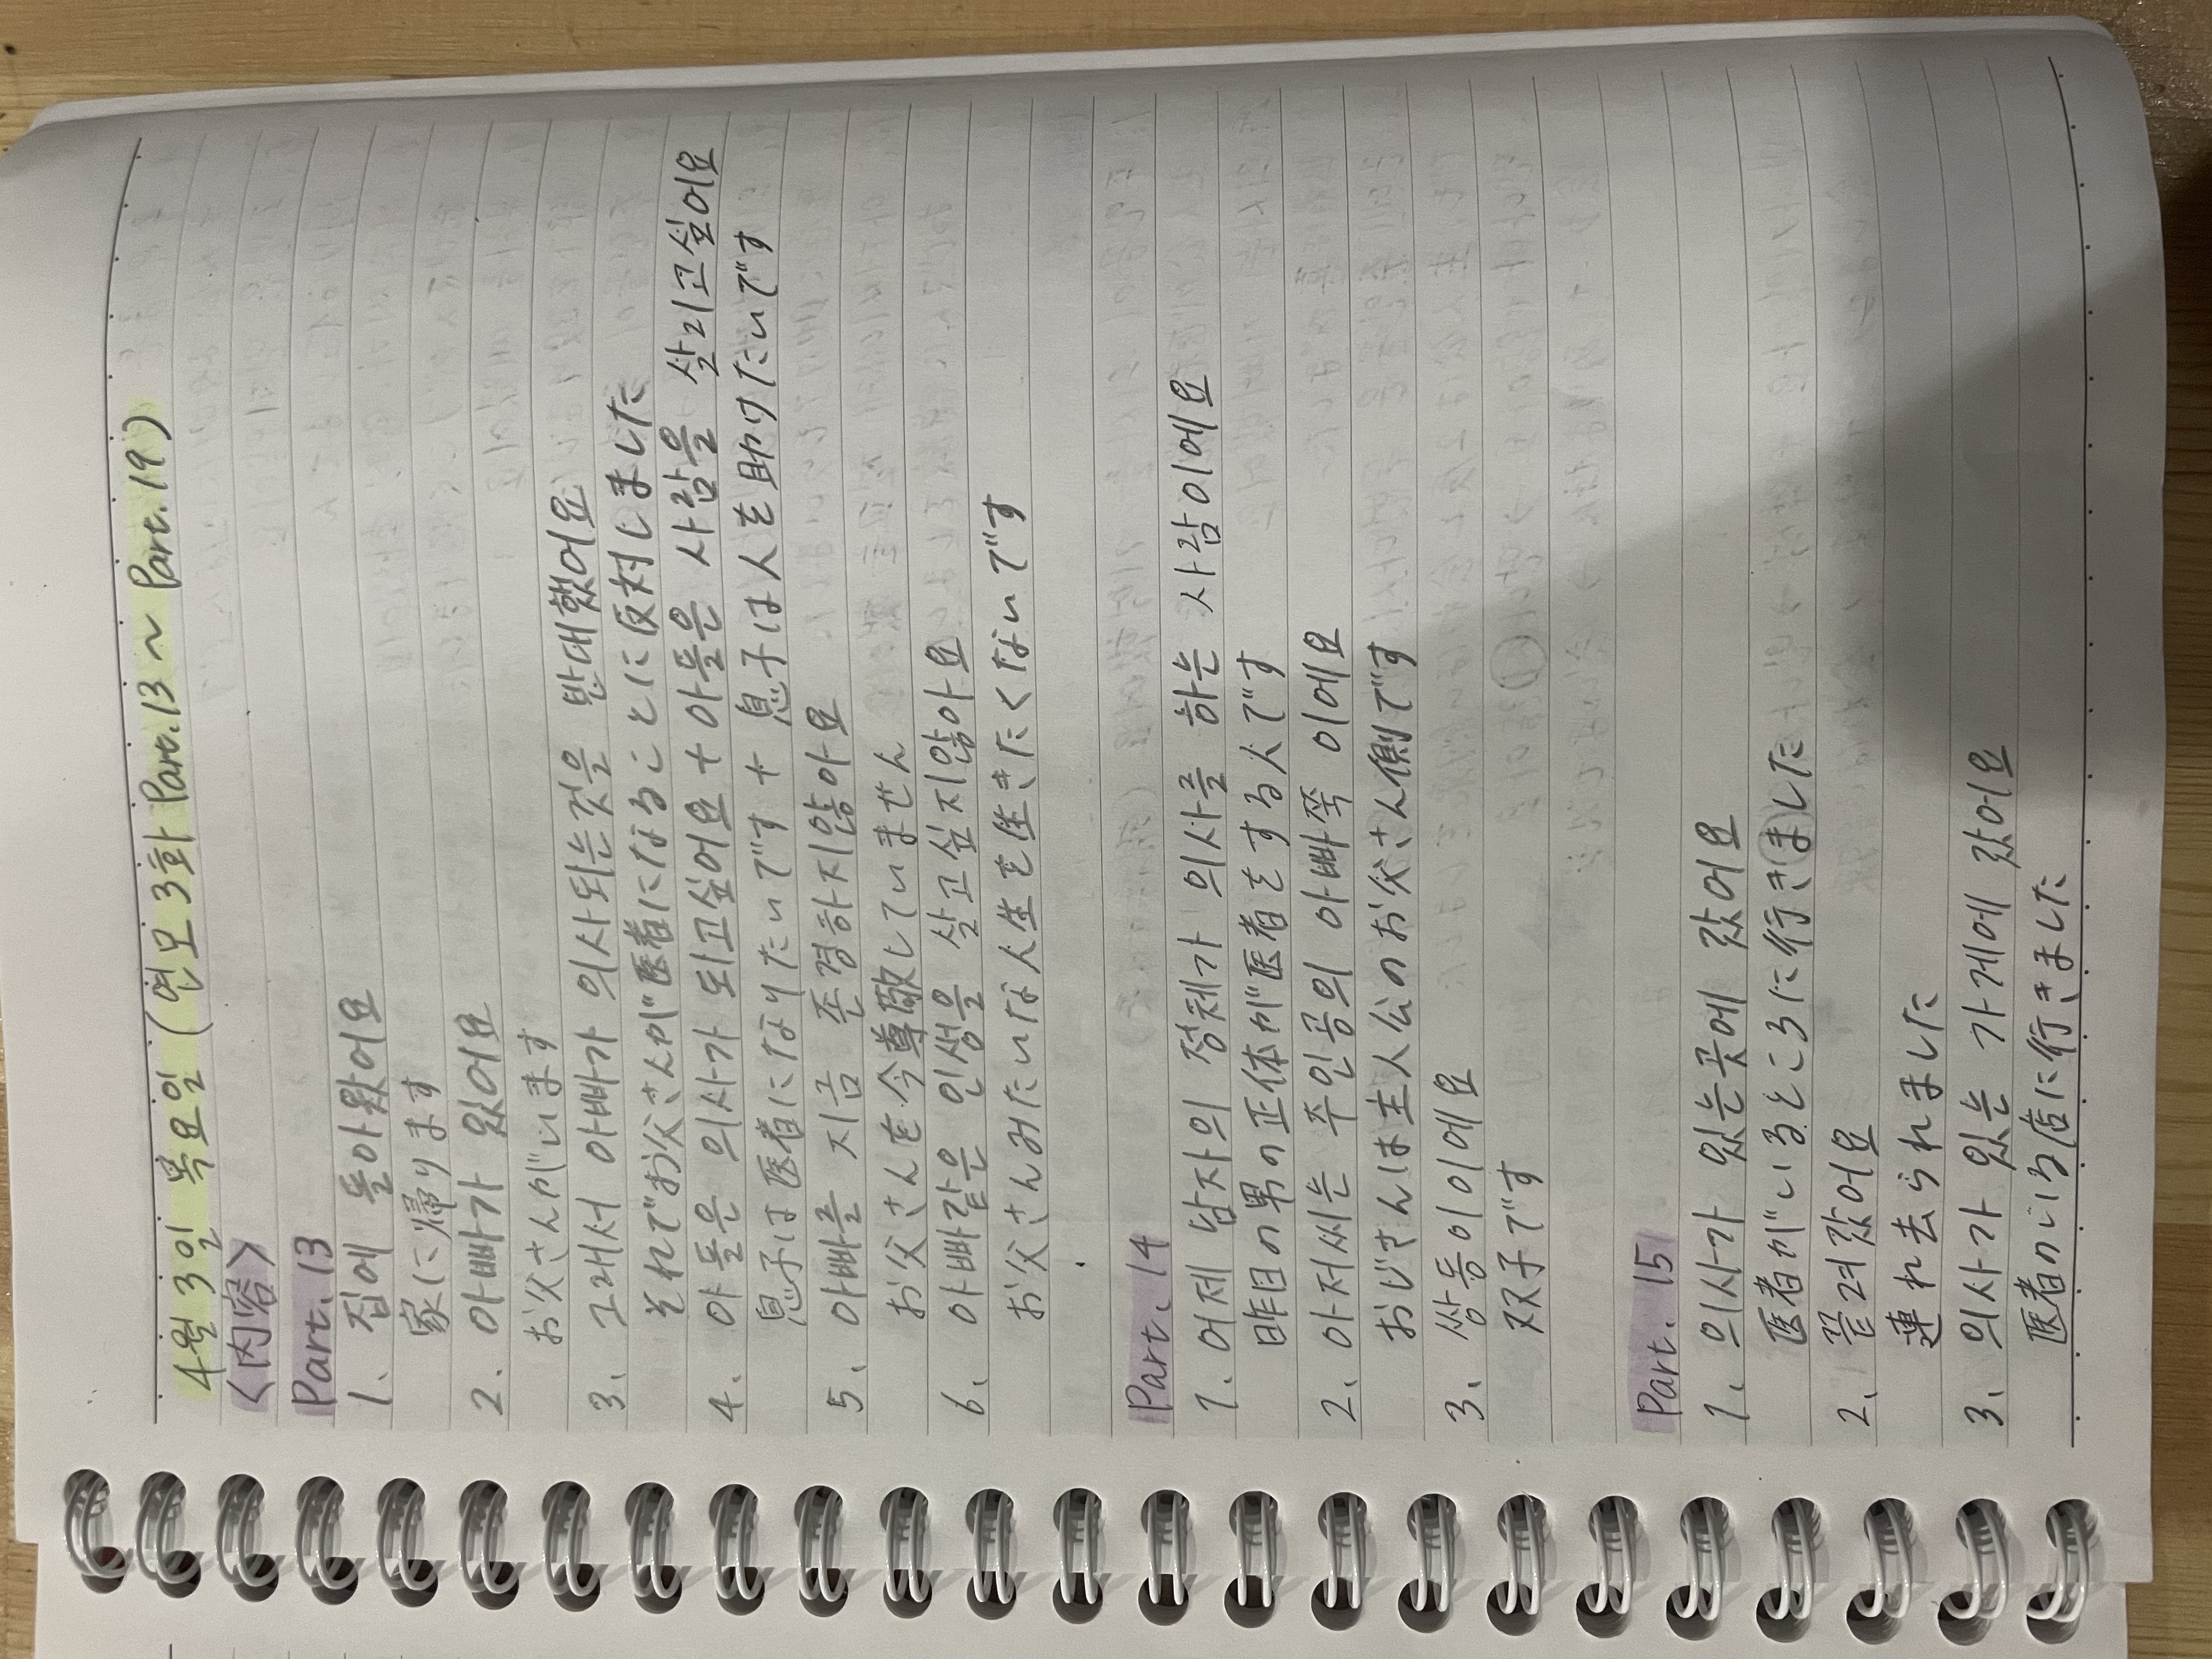 4월 3일 목요일 (연모 3화 Part.13 ~ Part.19)
<内容>
Part.13
1、집에 돌아왔어요
家に帰ります
2、아빠가 있어요
お父さんがいます
3、그래서 아빠가 의사되는것을 반대했어요
それでお父さんが医者になることに反対しました
4、아들은 의사가 되고싶어요 + 아들은 사람을 살리고싶어요
息子は医者になりたいです + 息子は人を助けたいです
5、아빠를 지금 존경하지않아요
お父さんを今尊敬していません
6、아빠같은 인생을 살고싶지않아요
お父さんみたいな人生を生きたくないです
Part.14
1、어제 남자의 정체가 의사를 하는 사람이에요
昨日の男の正体が医者をする人です
2、아저씨는 주인공의 아빠쪽 이에요
おじさんは主人公のお父さん側です
3、쌍둥이이에요
双子です
Part.15
1、의사가 있는곳에 갔어요
医者がいるところに行きました
2、끌려갔어요
連れ去られました
3、의사가 있는 가게에 갔어요
医者のいる店に行きました